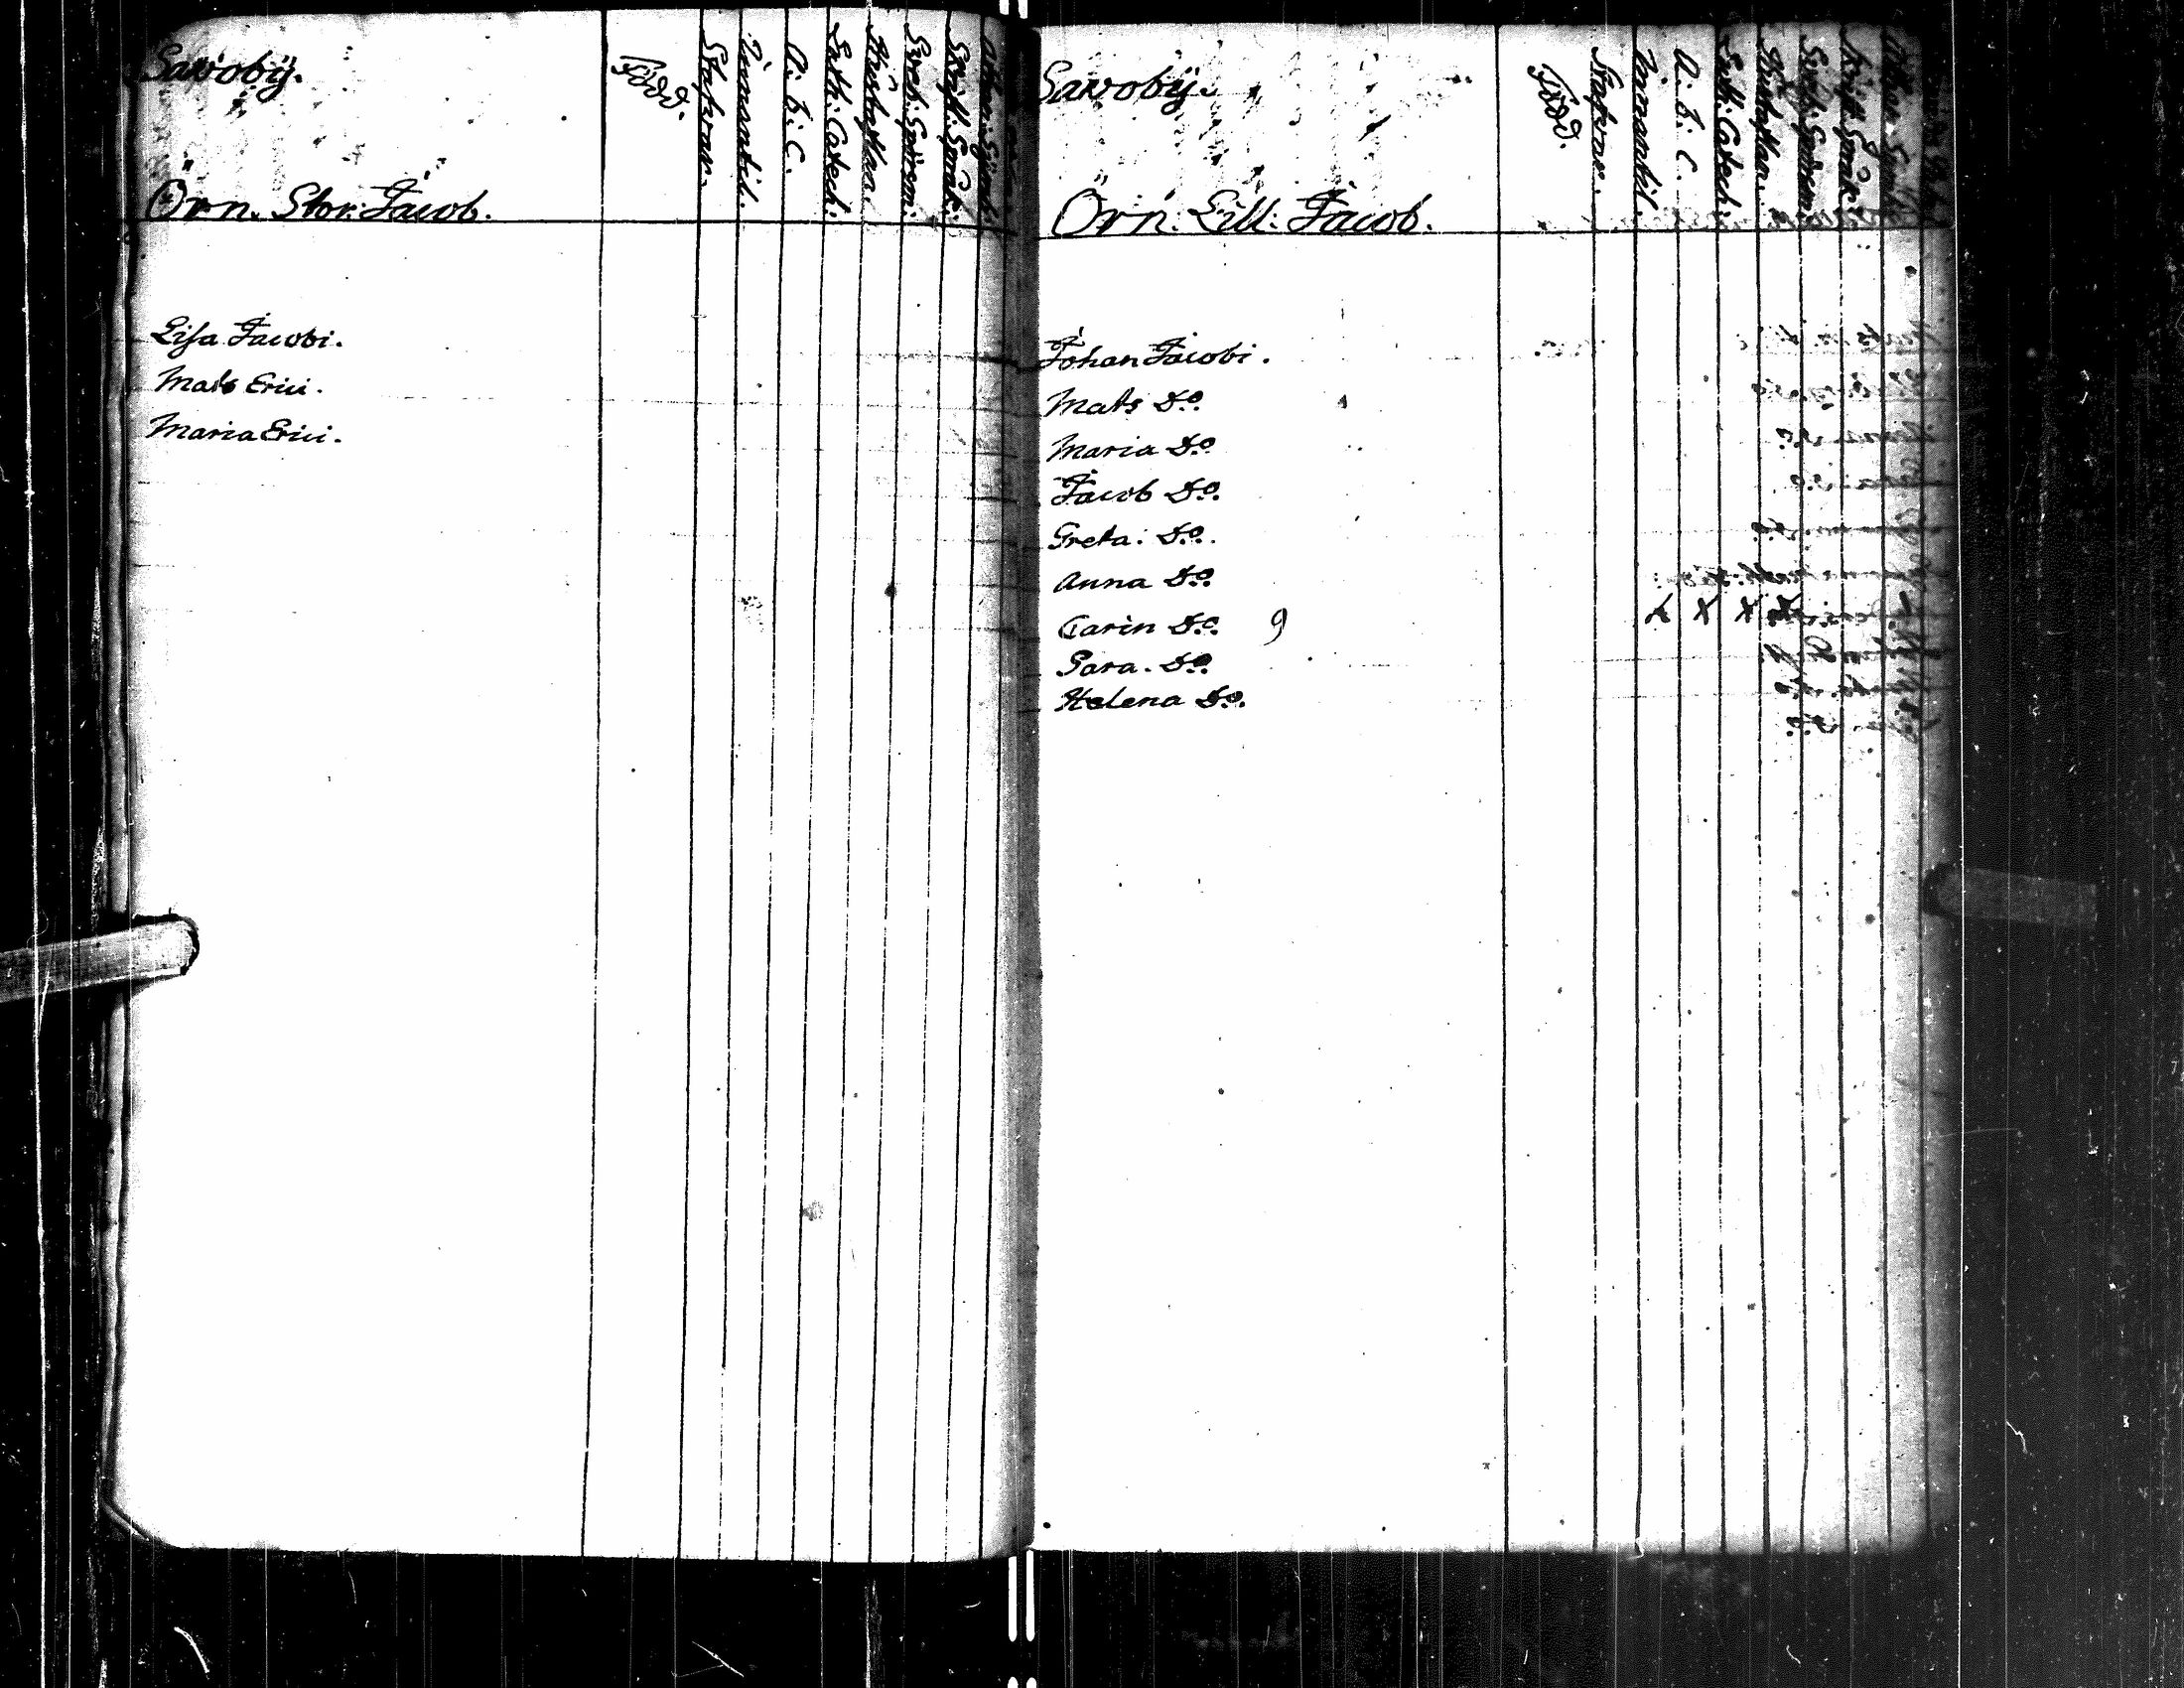 Sawobÿ.
Örn. Stor: Jacob.
Född.
Stafwar.
Innantil.
A. B. C.
Luth: Catech:
Hustaflan.
Sveb: Spörsm:
Skrift. Språk:
Lisa Jacobi.
Mats Erici.
Maria Erici.
Sawobÿ.
Örn: Lill: Jacob.
Född.
Stafwar.
Innantil.
A. B. C.
Luth: Catech:
Hustaflan.
Sveb: Spörsm:
Skrift. Språk:
Johan Jacobi.
Mats Do.
Maria Do.
Jacob Do.
Greta: Do.
Anna Do.
Carin Do. 9 x x x x
Sara. Do.
Helena Do.